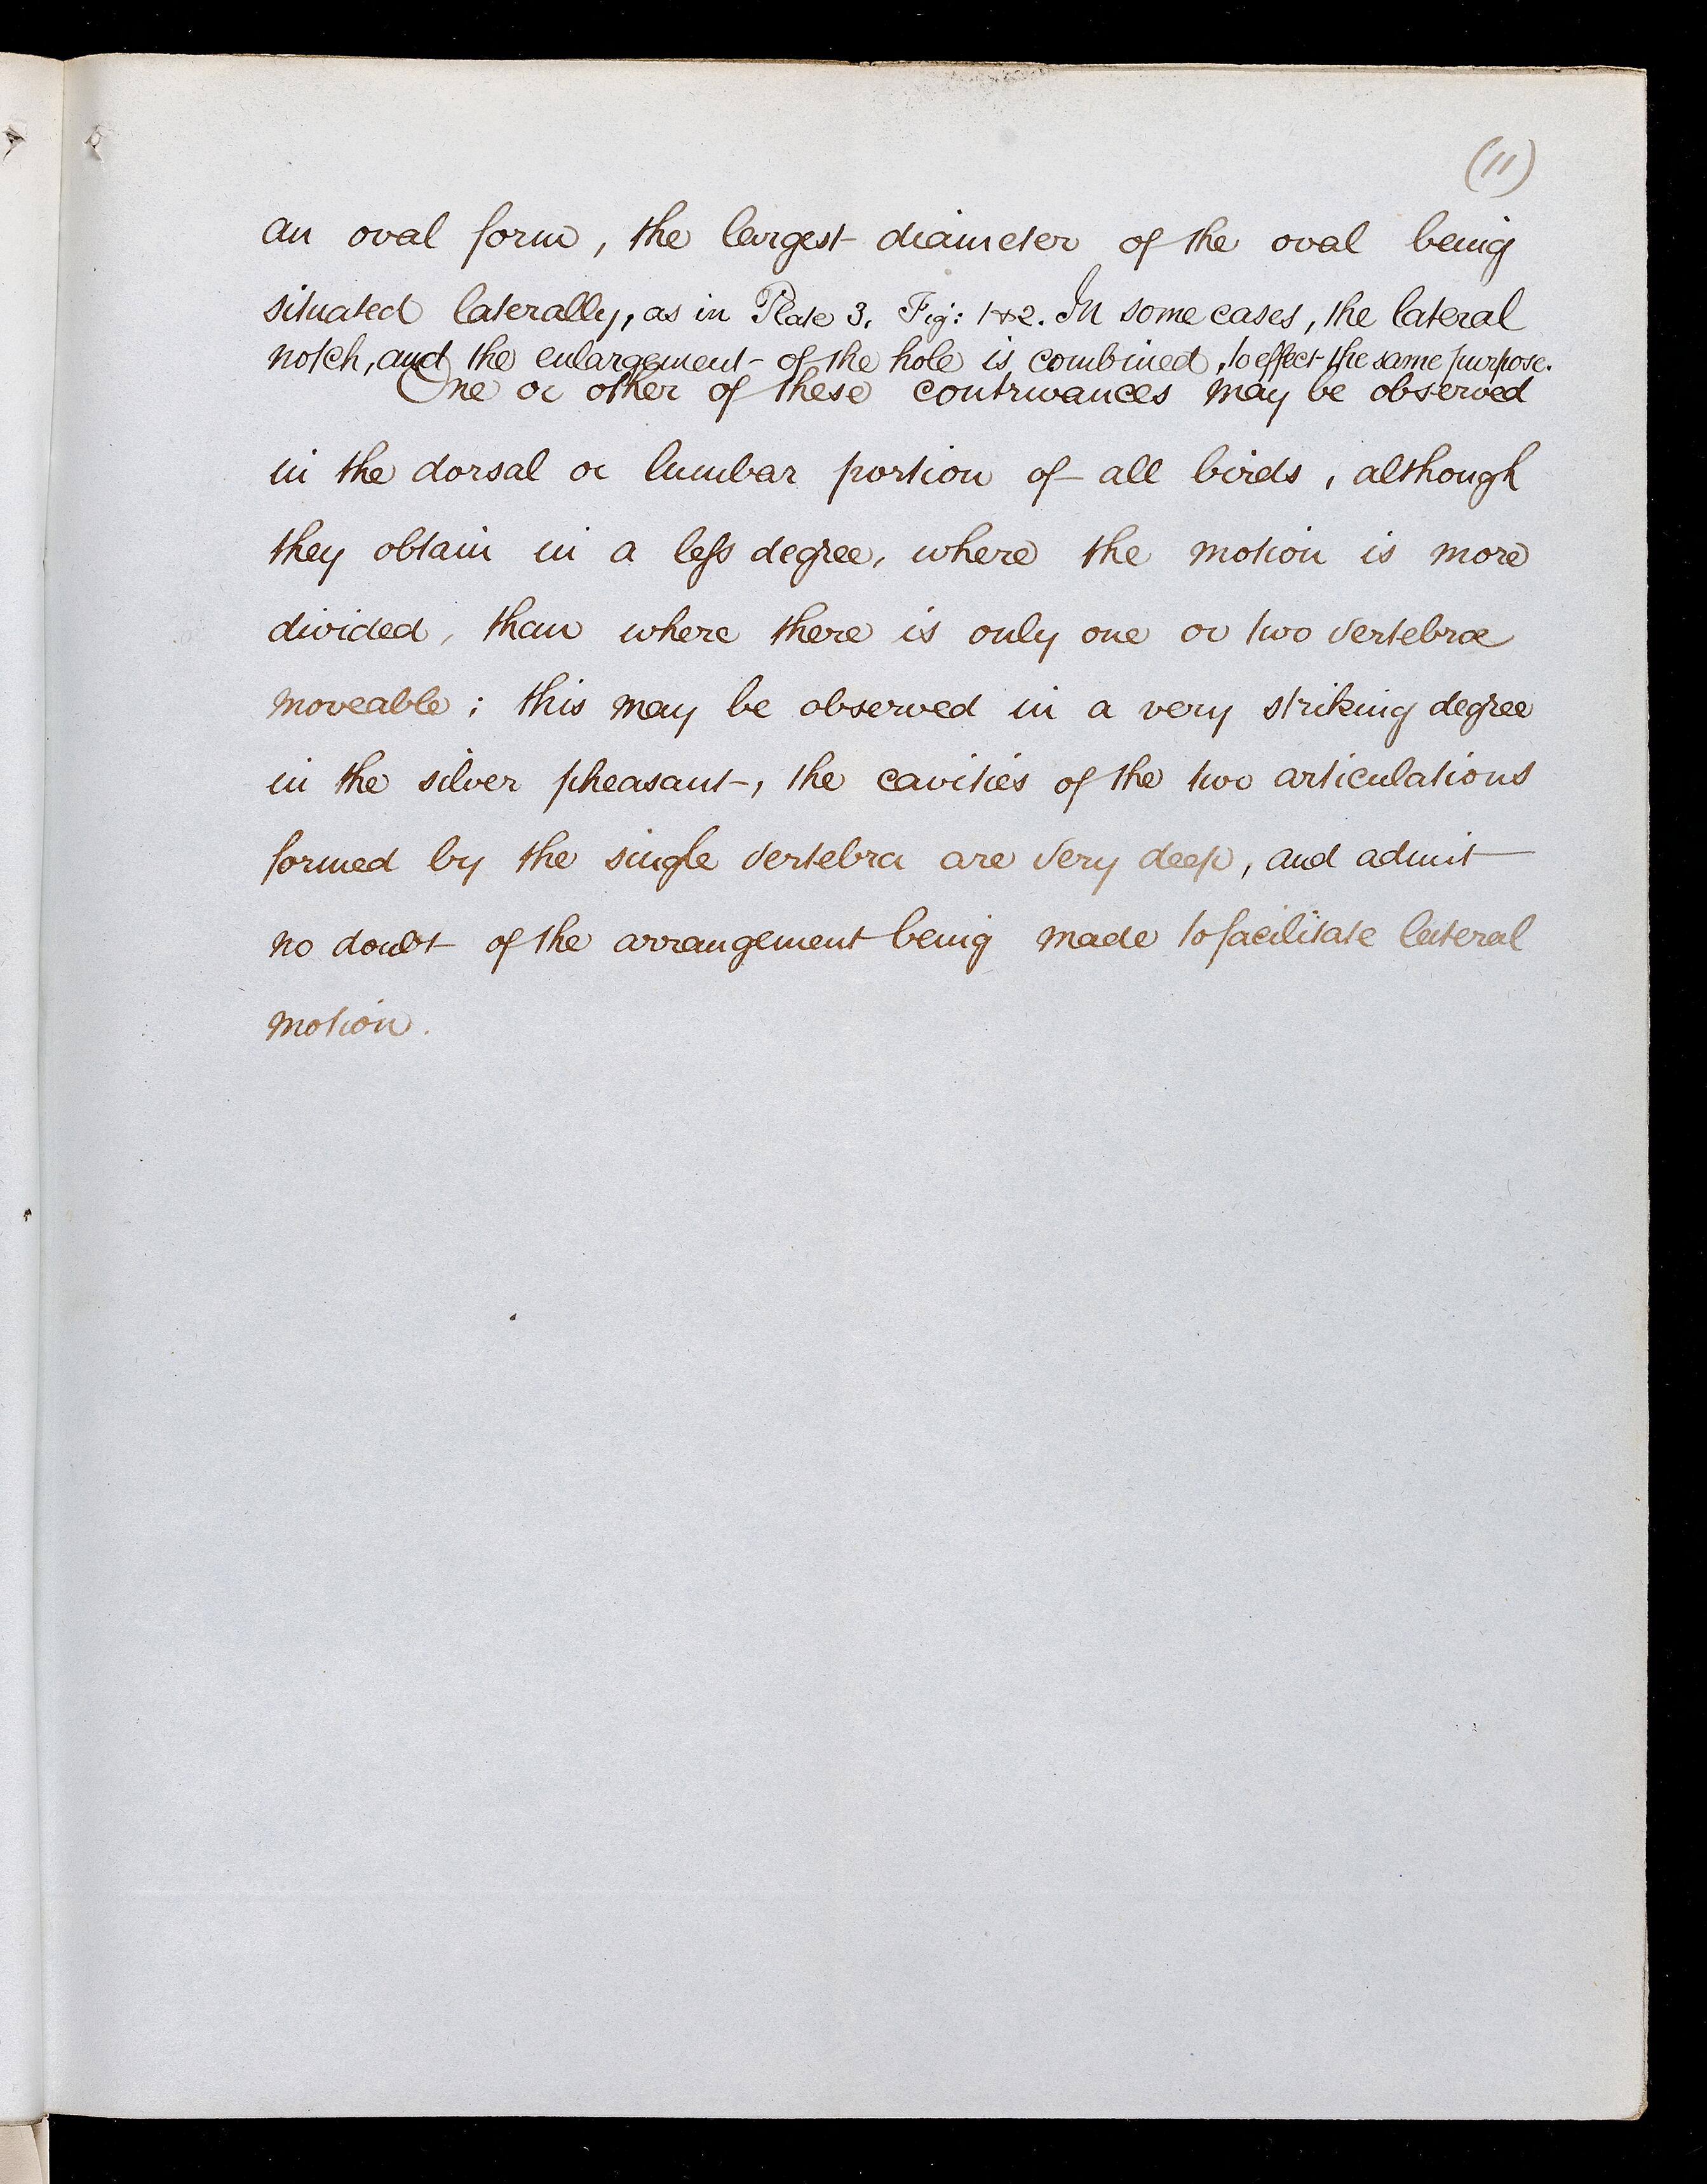 (11)
an oval form, the largest diameter of the oval being
situated laterally, as in Plate 3. Fig: 1 & 2. In some cases, the lateral
notch, and the enlargement of the hole is combined, to effect the same purpose.
One or other of these contrivances may be observed
in the dorsal or lumbar portion of all birds, although
they obtain in a less degree, where the motion is more
divided, than where there is only one or two vertebræ
moveable; this may be observed in a very striking degree
in the silver pheasant, the cavities of the two articulations
formed by the single vertebra are very deep, and admit
no doubt of the arrangement being made to facilitate lateral
motion.